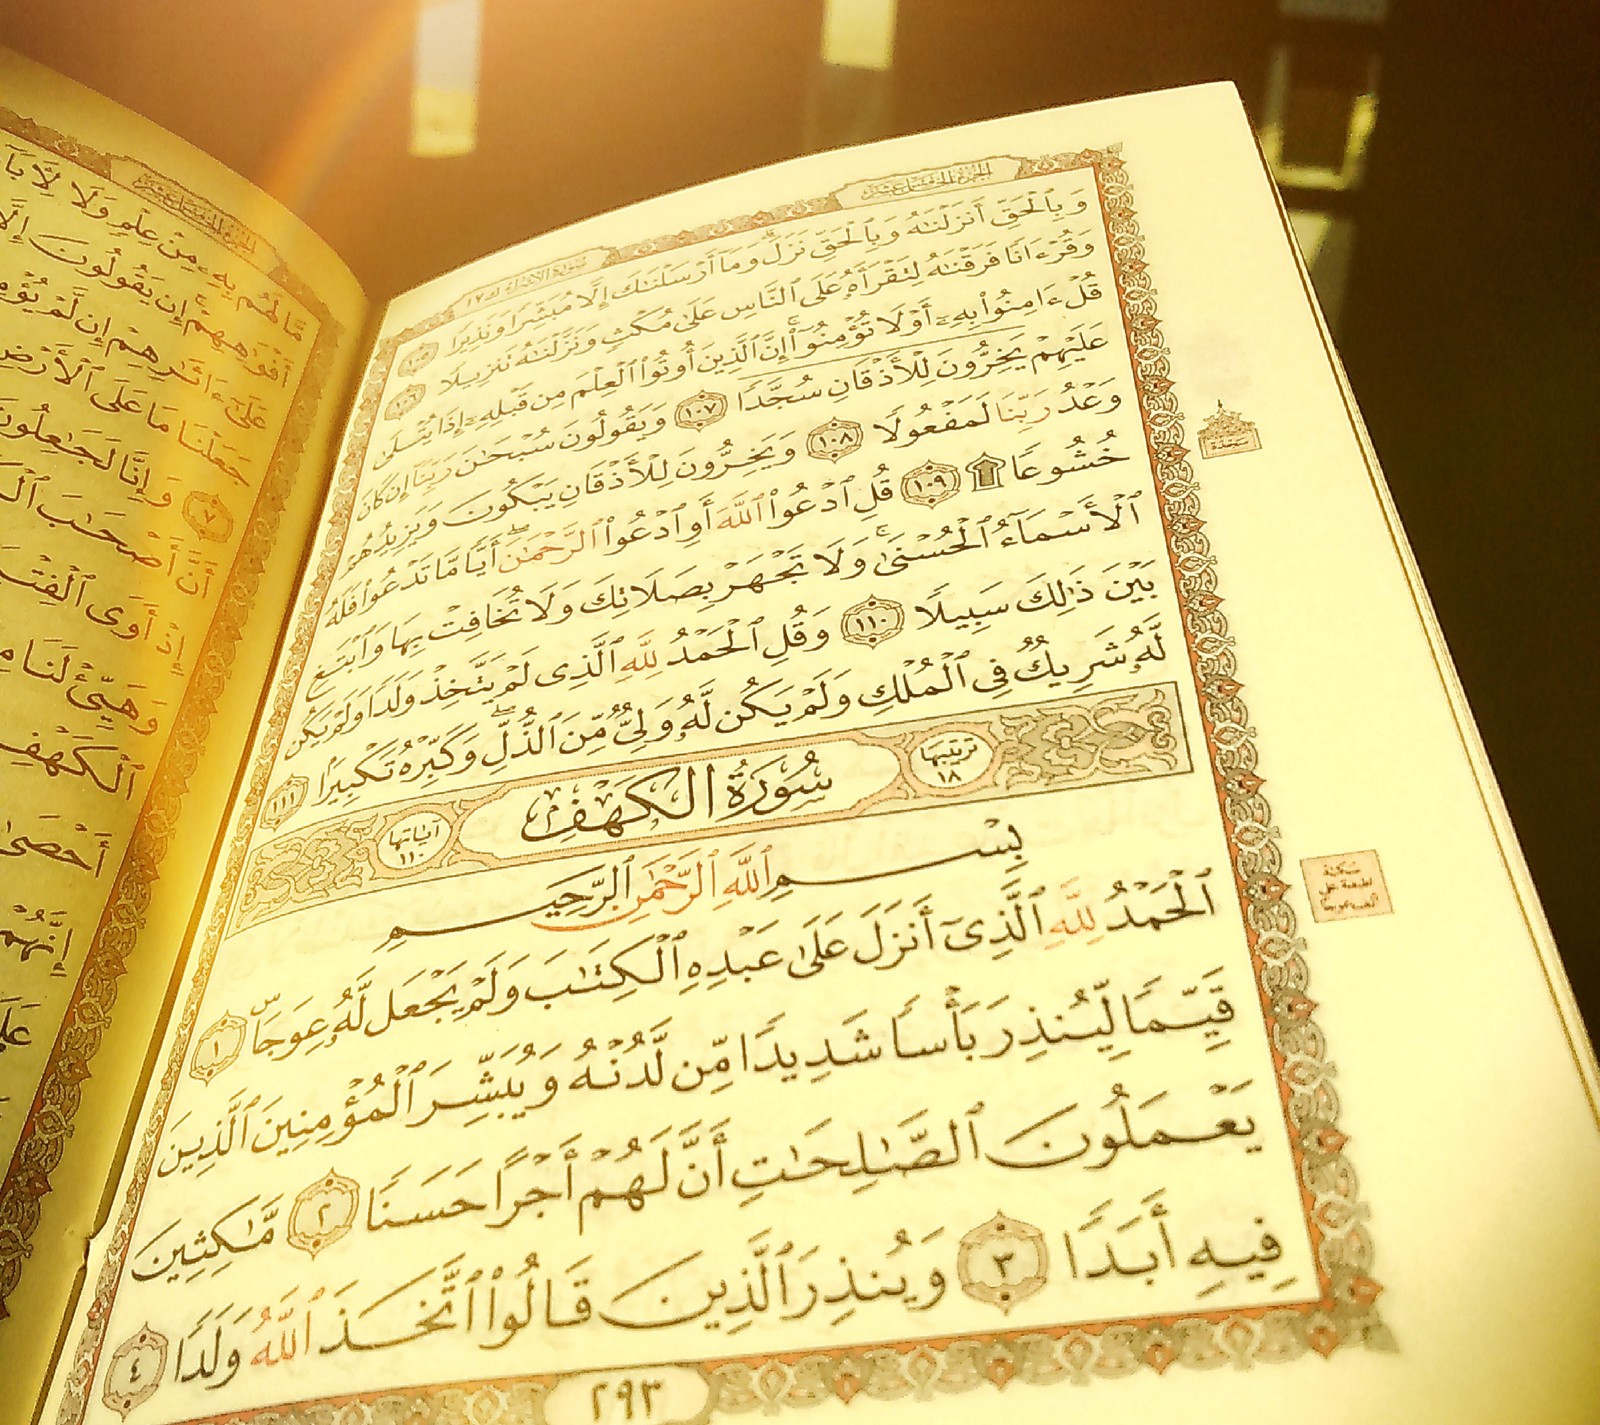 الجزء الخامس عشر
سورة الإسراء ١٧
وَبِٱلْحَقِّ أَنزَلْنَٰهُ وَبِٱلْحَقِّ نَزَلَ ۗ وَمَآ أَرْسَلْنَٰكَ إِلَّا مُبَشِّرًا وَنَذِيرًا ١٠٥
وَقُرْءَانًا فَرَقْنَٰهُ لِتَقْرَأَهُۥ عَلَى ٱلنَّاسِ عَلَىٰ مُكْثٍ وَنَزَّلْنَٰهُ تَنزِيلًا ١٠٦
قُلْ ءَامِنُوا۟ بِهِۦٓ أَوْ لَا تُؤْمِنُوٓا۟ ۚ إِنَّ ٱلَّذِينَ أُوتُوا۟ ٱلْعِلْمَ مِن قَبْلِهِۦٓ إِذَا يُتْلَىٰ
عَلَيْهِمْ يَخِرُّونَ لِلْأَذْقَانِ سُجَّدًا ١٠٧ وَيَقُولُونَ سُبْحَٰنَ رَبِّنَآ إِن كَانَ
وَعْدُ رَبِّنَا لَمَفْعُولًا ١٠٨ وَيَخِرُّونَ لِلْأَذْقَانِ يَبْكُونَ وَيَزِيدُهُمْ
خُشُوعًا ۩ ١٠٩ قُلِ ٱدْعُوا۟ ٱللَّهَ أَوِ ٱدْعُوا۟ ٱلرَّحْمَٰنَ ۖ أَيًّا مَّا تَدْعُوا۟ فَلَهُ
ٱلْأَسْمَآءُ ٱلْحُسْنَىٰ ۚ وَلَا تَجْهَرْ بِصَلَاتِكَ وَلَا تُخَافِتْ بِهَا وَٱبْتَغِ
بَيْنَ ذَٰلِكَ سَبِيلًا ١١٠ وَقُلِ ٱلْحَمْدُ لِلَّهِ ٱلَّذِى لَمْ يَتَّخِذْ وَلَدًا وَلَمْ يَكُن
لَّهُۥ شَرِيكٌ فِى ٱلْمُلْكِ وَلَمْ يَكُن لَّهُۥ وَلِىٌّ مِّنَ ٱلذُّلِّ ۖ وَكَبِّرْهُ تَكْبِيرًۢا ١١١
ترتيبها ١٨ سُورَةُ الكَهْفِ آياتها ١١٠
بِسْمِ ٱللَّهِ ٱلرَّحْمَٰنِ ٱلرَّحِيمِ
ٱلْحَمْدُ لِلَّهِ ٱلَّذِىٓ أَنزَلَ عَلَىٰ عَبْدِهِ ٱلْكِتَٰبَ وَلَمْ يَجْعَل لَّهُۥ عِوَجَا ۜ ١
قَيِّمًا لِّيُنذِرَ بَأْسًا شَدِيدًا مِّن لَّدُنْهُ وَيُبَشِّرَ ٱلْمُؤْمِنِينَ ٱلَّذِينَ
يَعْمَلُونَ ٱلصَّٰلِحَٰتِ أَنَّ لَهُمْ أَجْرًا حَسَنًا ٢ مَّٰكِثِينَ
فِيهِ أَبَدًا ٣ وَيُنذِرَ ٱلَّذِينَ قَالُوا۟ ٱتَّخَذَ ٱللَّهُ وَلَدًا ٤
٢٩٣
سجدة
مَّا لَهُم بِهِۦ مِنْ عِلْمٍ وَلَا لِـَٔابَا
أَفْوَٰهِهِمْ ۚ إِن يَقُولُونَ إِلَّا
عَلَىٰٓ ءَاثَٰرِهِمْ إِن لَّمْ يُؤْمِ
جَعَلْنَا مَا عَلَى ٱلْأَرْضِ
٧ وَإِنَّا لَجَٰعِلُونَ
أَنَّ أَصْحَٰبَ ٱلْكَ
إِذْ أَوَى ٱلْفِتْ
وَهَيِّئْ لَنَا مِ
ٱلْكَهْفِ
أَحْصَىٰ
إِنَّهُمْ